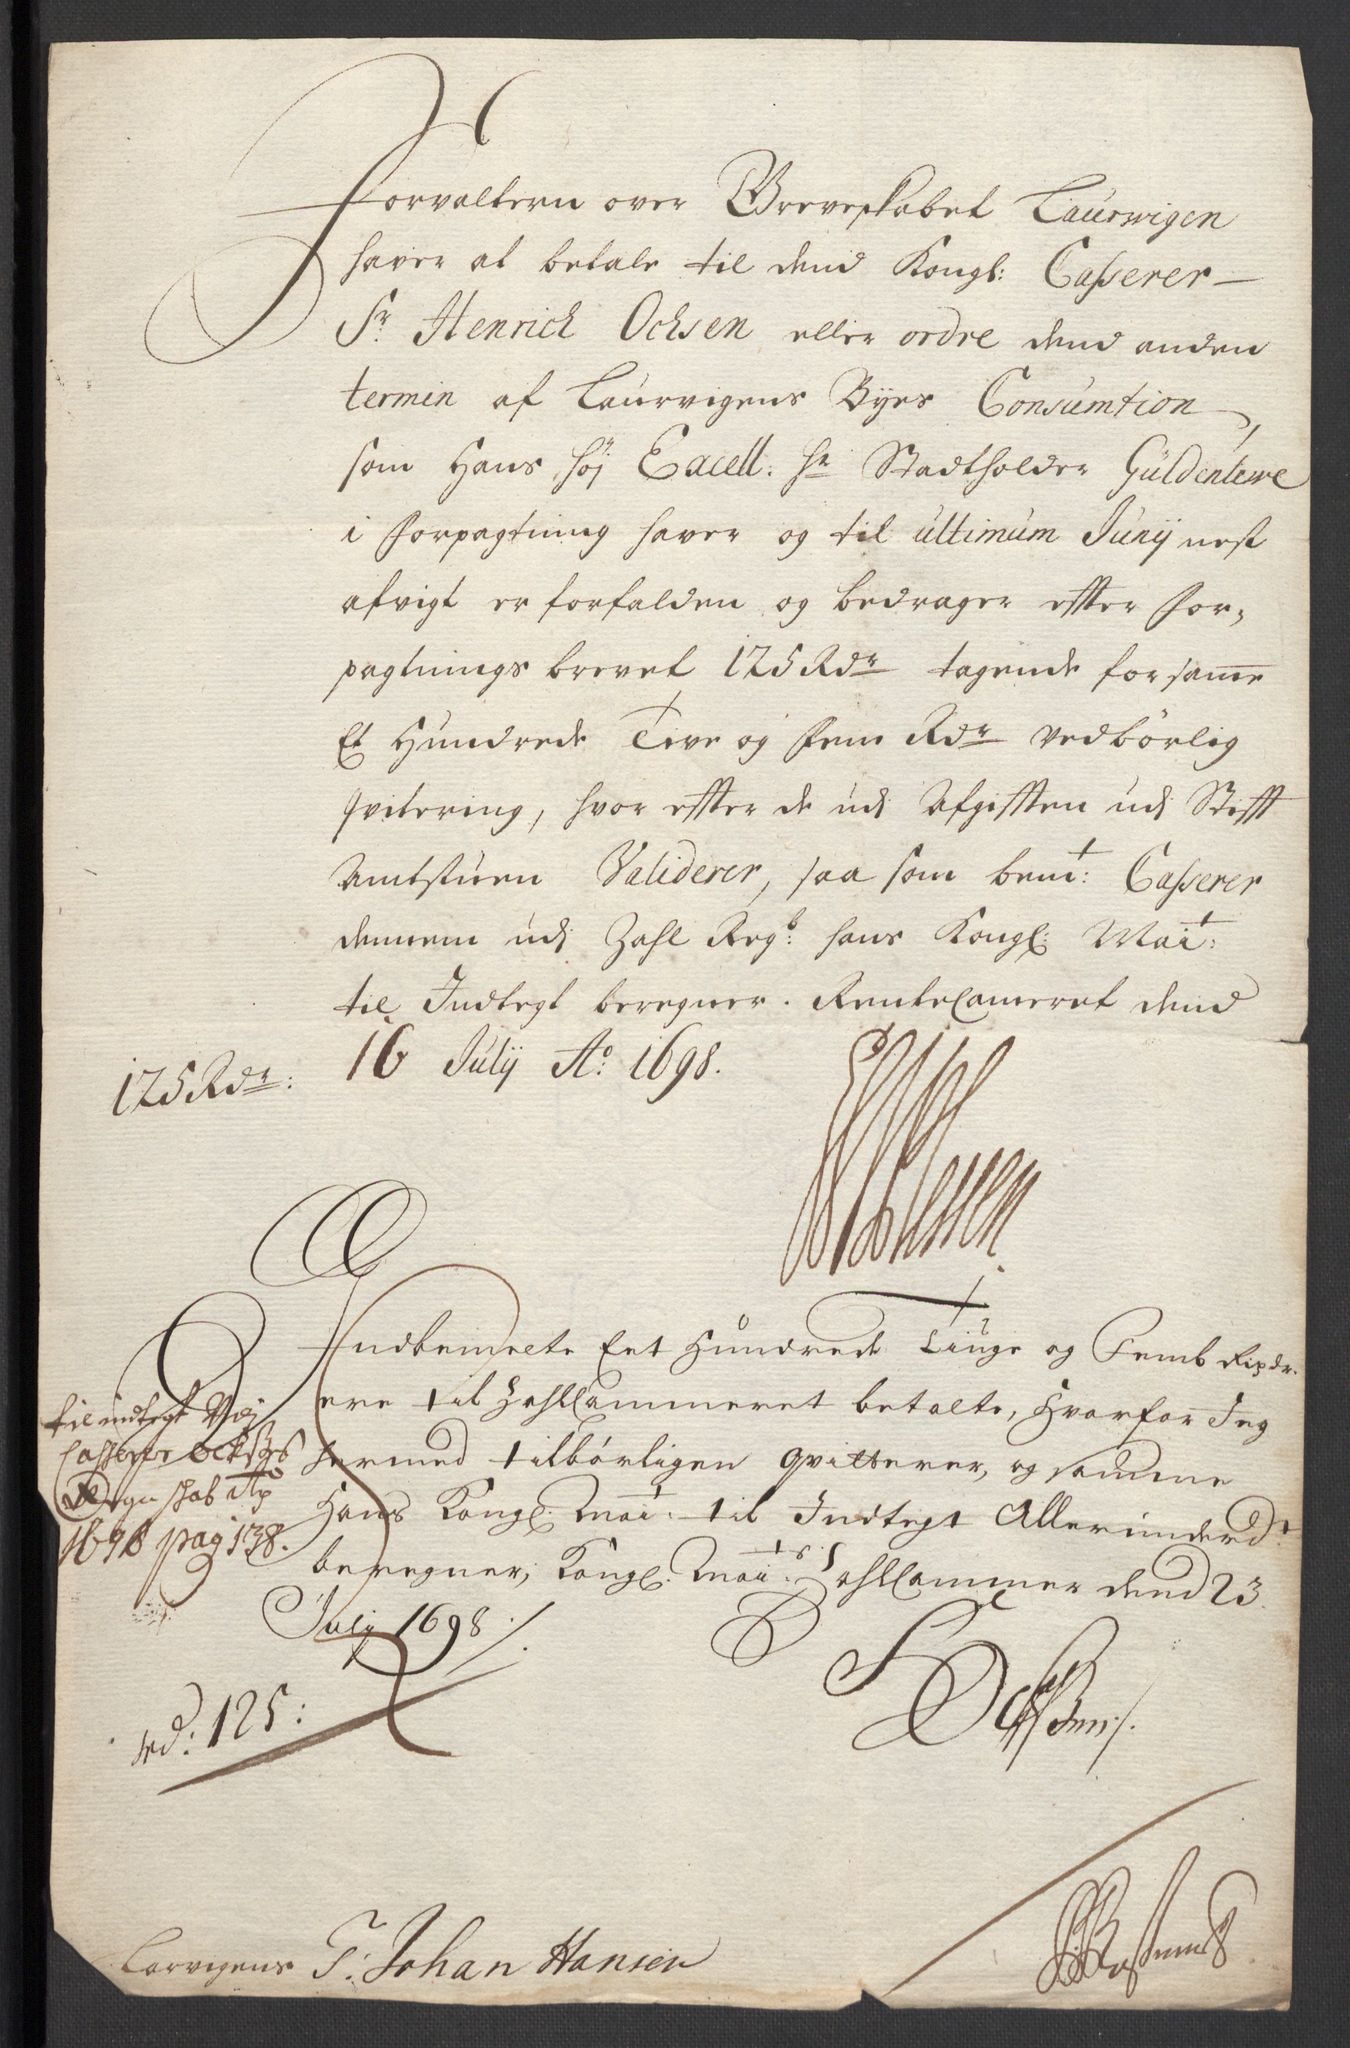 Forvaltern over Greveskabet Laurwigen
haver at betale til dend Kongl: Casserer
Sr. Henrich Ochsen eller ordre dend anden
termin af Laurvigens Byes Consumtion,
som Hans høj Excell: hr Stadtholder Güldenlewe
i forpagtning haver og til ultimum Junij nest
afvigt er forfalden og bedrager effter for-
pagtnings brevet 125 Rdr tagende for same
Et Hundrede Tive og fem Rdr vedbörlig
qvitering, hvor effter de udj Afgifften udj Stifft
Amtstuen Validerer, saa som bemt: Casserer
dennem udj Zahl Regb: hans Kongl: Mait:
til Indtegt beregner. RenteCameret dend
16 Julij Ao: 1698.
125 Rdr:
Indbemelte Eet Hundrede Tiuge og Femb Rixdr.
ere til ZahlCammeret betalte, Hvorfor Jeg
hermed tilbörligen qvitterer, og samme
Hans Kongl: Mait: til Indtegt Allerunderdt:
beregner, Kongl: Maits: ZahlCammer dend 23.
Julij 1698 ./.
til indtegt udj
Casserer Ocksens
Regnskab Ao
1698 pag 138.
rd: 125:
H Ochsen ./.
Larvigens T: Johan Hansen